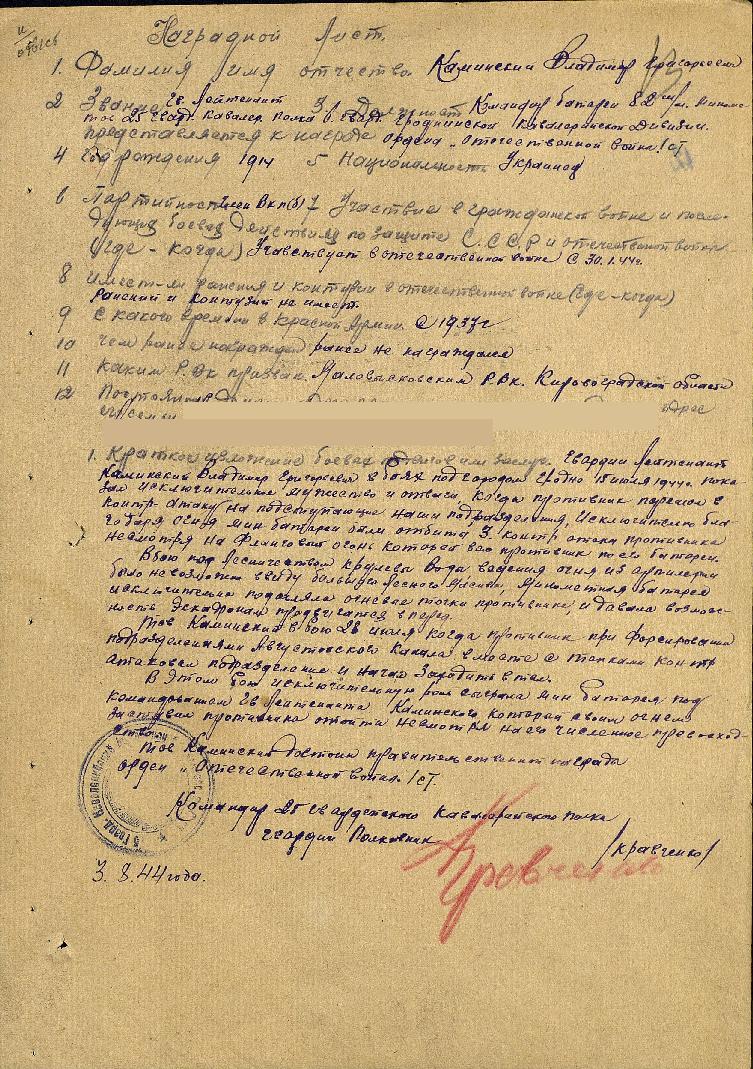 Наградной Лист.
1. Фамилия имя отчество Каминский Владимир Григорьевич
2 Звание Гв. Лейтенант 3 Командир батареи 82 м/м. Миноме-
тов 25 гвард. Кавалер. Полка 6 гвард. Гродненской Кавалерийской Дивизии.
представляется к награде Ордена „Отечественной война" I ст
4 Год рождения 1914 5 Национальность Украинец
6 Партийность член Вкп(б) 7 Участие в гражданской войне и после-
дующих боевых действиях по защите С.С.С.Р и отечественной войне
(где - когда) Учавствует в отечественной войне с 30.1.44г.
8 Имеет-ли ранения и контузии в отечественной войне (где-когда)
Ранений и контузий не имеет.
9 С какого времени в Красной Армии. с 1937г
10 Чем ранее награжден ранее не награждался
11 Каким Р.Вк призван. Маловысковским Р.Вк. Кировоградской области
12 адрес
его семьи
1. Краткое изложение боевых подвигов или заслуг. Гвардии Лейтенант
Каминский Владимир Григорьевич в боях под городом Гродно 15 июля 1944г. пока-
зал исключительное мужество и отвагу, когда противник перешел в
контр-атаку на подступающие наши подразделения, Исключительно бла-
годаря огня мин батареи были отбиты 3 контр атаки противника
несмотря на фланговый огонь который вел противник по его батареи.
В бою под лесничеством ведения огня из артилерии
было невозможно ввиду большого лесного масива. Минометная батарея
исключительно подовляла огневые точки противника, и давала возмож-
ность эскадронам продвигатся вперед.
Тов Каминский в бою 28 июля когда противник при форсировании
подразделениями Августовского Канала вместе с танками контр
атаковал подразделение и начал заходить в тыл.
В этом бою исключительную роль сыграла мин батарея под
командованием Гв Лейтенанта Каминского которая своим огнем
заставил противника отойти несмотря на его численное превосход-
ство.
Тов Каминский достоин правительственной награды
орден „Отечественной война" I ст.
Командир 25 Гвардейского Кавалерийского полка
гвардии Полковник /Кравченко/
Кравченко
3. 8. 44 года.